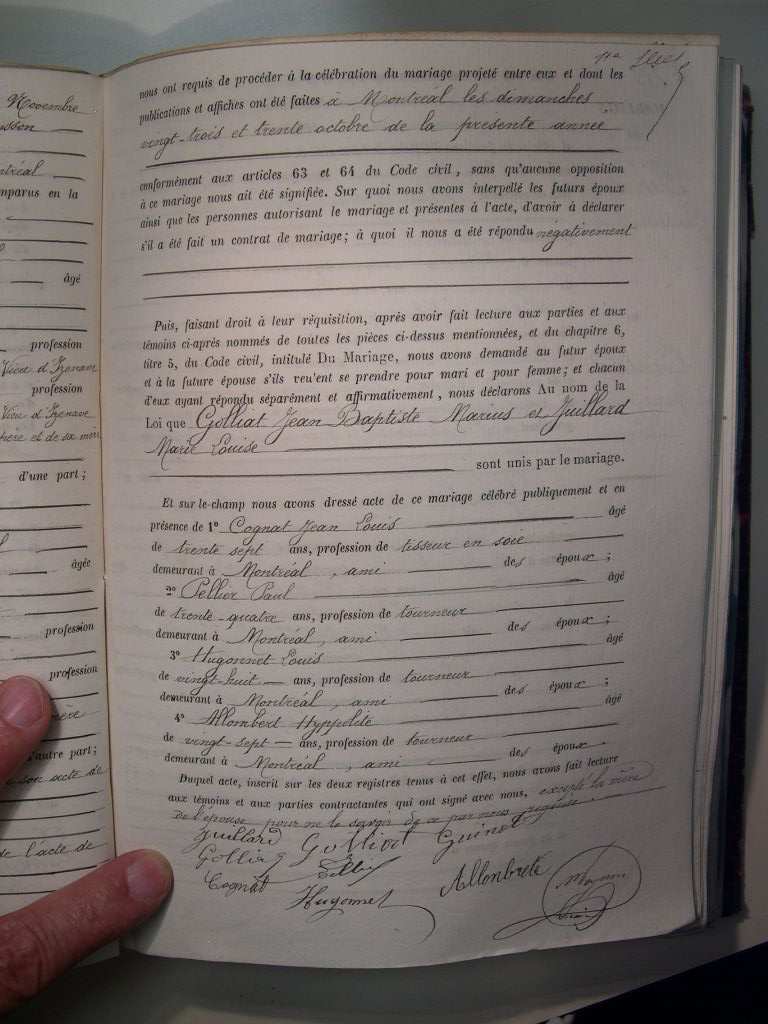 Novembre
nous ont requis de procéder à la célébration du mariage projeté entre eux et dont les
publications et affiches ont été faites à Montréal les dimanches
vingt-trois et trente octobre de la présente année
conformément aux articles 63 et 64 du Code civil, sans qu'aucune opposition
à ce mariage nous ait été signifiée. Sur quoi nous avons interpellé les futurs époux
ainsi que les personnes autorisant le mariage et présentes à l'acte, d'avoir à déclarer
s'il a été fait un contrat de mariage; à quoi il nous a été répondu négativement
âgé
profession
profession
père et de six mois
d'une part;
âgée
profession
profession
l'autre part;
son acte de
de l'acte de
Puis, faisant droit à leur réquisition, après avoir fait lecture aux parties et aux
témoins ci-après nommés de toutes les pièces ci-dessus mentionnées, et du chapitre 6,
titre 5, du Code civil, intitulé Du Mariage, nous avons demandé au futur époux
et à la future épouse s'ils veu'ent se prendre pour mari et pour femme; et chacun
d'eux ayant répondu séparément et affirmativement, nous déclarons Au nom de la
Loi que Golliat Jean Baptiste Marius et Juillard
Marie Louise
sont unis par le mariage.
Et sur-le-champ nous avons dressé acte de ce mariage célébré publiquement et en
présence de 1º Cognat Jean Louis âgé
de trente sept ans, profession de tisseur en soie
demeurant à Montréal, ami des époux;
2º Pellier Paul âgé
de trente-quatre ans, profession de tourneur
demeurant à Montréal, ami des époux;
3º Hugonnet Louis âgé
de vingt-huit ans, profession de tourneur
demeurant à Montréal, ami des époux;
4º Allombert Hyppolite âgé
de vingt-sept ans, profession de tourneur
demeurant à Montréal, ami des époux.
Duquel acte, inscrit sur les deux registres tenus à cet effet, nous avons fait lecture
aux témoins et aux parties contractantes qui ont signé avec nous, excepté la mère
de l'épouse pour ne le savoir de ce par nous requise.
Juillard Golliat Guinet
Golliat
Cognat Hugonnet